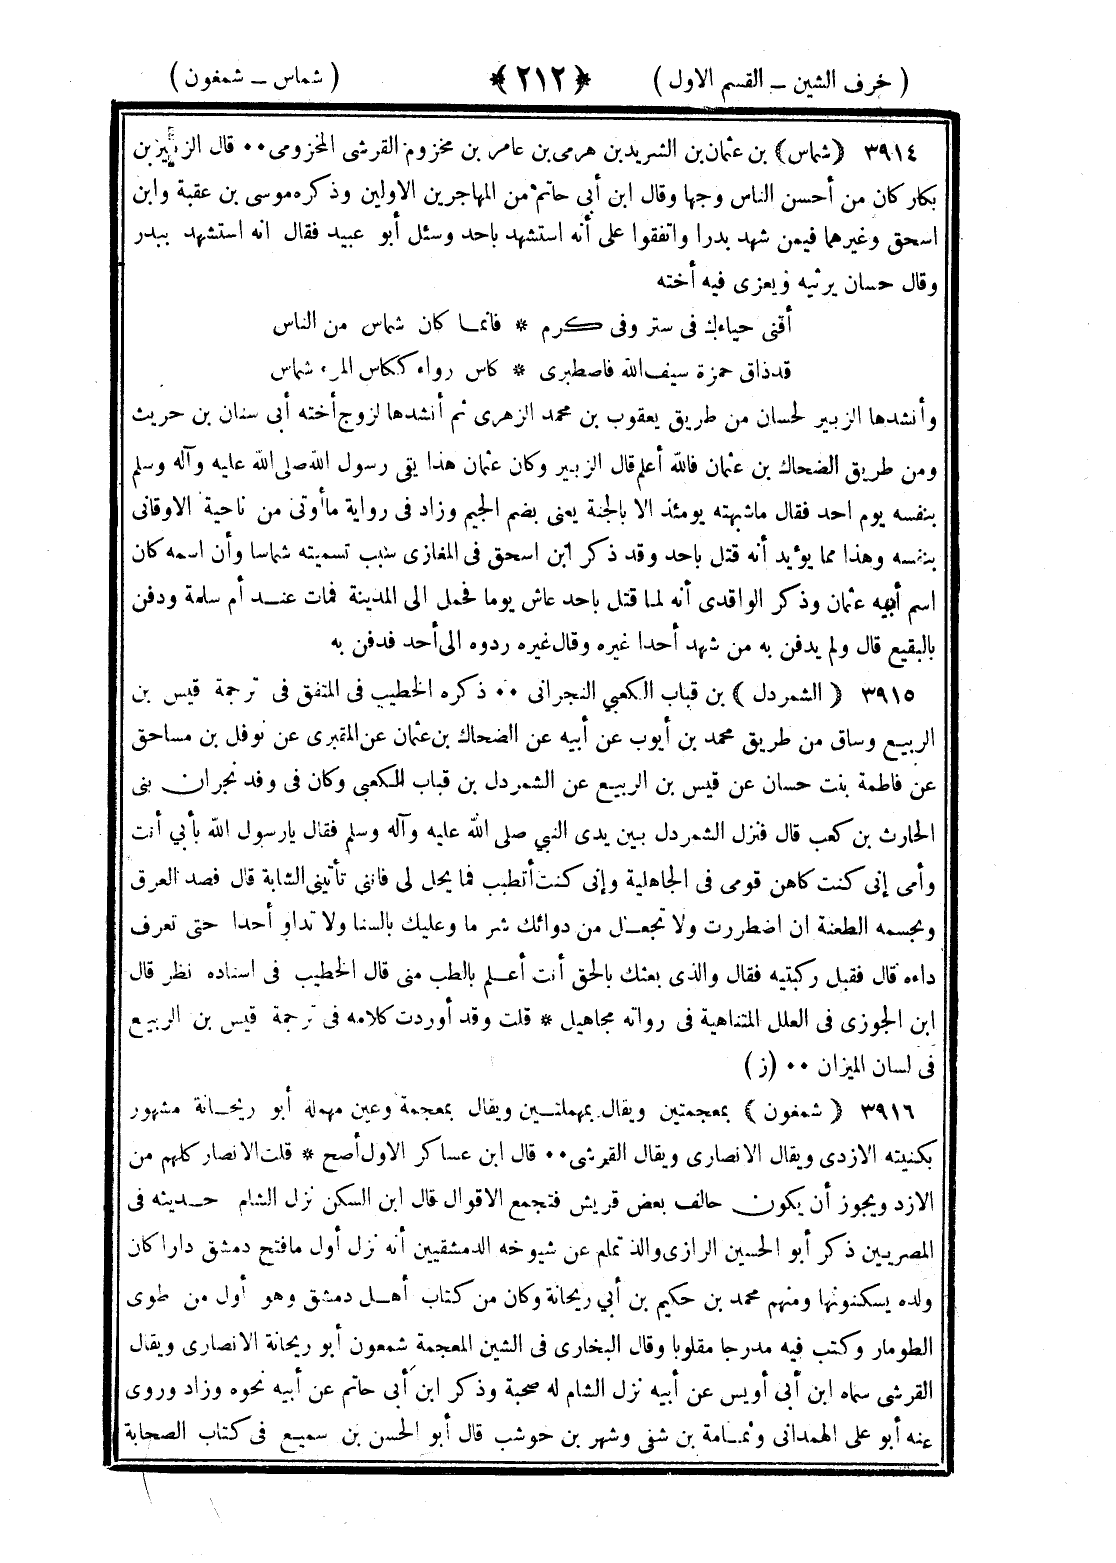 ( حرف الشين ـ القسم الاول ) ﴿ ٢١٢ ﴾ ( شماس ـ شمغون )
٣٩١٤ ﴿ شماس ﴾ بن عثمان بن الشريد بن هرمى بن عامر بن مخزوم القرشى المخزومى ٠٠ قال الزبير بن
بكار كان من أحسن الناس وجها وقال ابن أبي حاتم من المهاجرين الاولين وذكره موسى بن عقبة وابن
اسحق وغيرهما فيمن شهد بدرا واتفقوا على أنه استشهد باحد وسئل أبو عبيد فقال انه استشهد ببدر
وقال حسان يرثيه ويعزى فيه أخته
أقنى حياءك فى ستر وفى كرم * فانما كان شماس من الناس
قد ذاق حمزة سيف الله فاصطبرى * كاس رواء ككاس المرء شماس
وأنشدها الزبير لحسان من طريق يعقوب بن محمد الزهرى ثم أنشدها لزوج أخته أبى سنان بن حريث
ومن طريق الضحاك بن عثمان فالله أعلم قال الزبير وكان عثمان هذا يقى رسول الله صلى الله عليه وآله وسلم
بنفسه يوم احد فقال ماشبهته يومئذ الا بالجنة يعنى بضم الجيم وزاد فى رواية ماأوتى من ناحية الاوقانى
بنفسه وهذا مما يؤيد أنه قتل باحد وقد ذكر ابن اسحق فى المغازى سبب تسميته شماسا وأن اسمه كان
اسم أبيه عثمان وذكر الواقدى أنه لما قتل باحد عاش يوما فحمل الى المدينة فمات عند أم سلمة ودفن
بالبقيع قال ولم يدفن به من شهد أحدا غيره وقال غيره ردوه الى أحد فدفن به
٣٩١٥ ﴿ الشمردل ﴾ بن قباب الكعبي النجرانى ٠٠ ذكره الخطيب فى المتفق فى ترجمة قيس بن
الربيع وساق من طريق محمد بن أيوب عن أبيه عن الضحاك بن عثمان عن المقبرى عن نوفل بن مساحق
عن فاطمة بنت حسان عن قيس بن الربيع عن الشمردل بن قباب الكعبي وكان فى وفد نجران بنى
الحارث بن كعب قال فنزل الشمردل بين يدى النبي صلى الله عليه وآله وسلم فقال يارسول الله بأبي أنت
وأمى إنى كنت كاهن قومى فى الجاهلية وإنى كنت أتطبب فما يحل لى فاننى تأتينى الشابة قال فصد العرق
وبجسمه الطعنة ان اضطررت ولا تجعل من دوائك شر ما وعليك بالسنا ولا تداو أحدا حتى تعرف
داءه قال فقبل ركبتيه فقال والذى بعثك بالحق أنت أعلم بالطب منى قال الخطيب فى اسناده نظر قال
ابن الجوزى فى العلل المتناهية فى رواته مجاهيل * قلت وقد أوردت كلامه فى ترجمة قيس بن الربيع
فى لسان الميزان ٠٠ (ز)
٣٩١٦ ﴿ شمغون ﴾ بمعجمتين ويقال بمهملتين ويقال بمعجمة وعين مهملة أبو ريحانة مشهور
بكنيته الازدى ويقال الانصارى ويقال القرشى ٠٠ قال ابن عساكر الاول أصح * قلت الانصار كلهم من
الازد ويجوز أن يكون حالف بعض قريش فتجمع الاقوال قال ابن السكن نزل الشام حديثه فى
المصريين ذكر أبو الحسين الرازى والد تملم عن شيوخه الدمشقيين أنه نزل أول مافتح دمشق دارا كان
ولده يسكنونها ومنهم محمد بن حكيم بن أبي ريحانة وكان من كتاب أهل دمشق وهو أول من طوى
الطومار وكتب فيه مدرجا مقلوبا وقال البخارى فى الشين المعجمة شمعون أبو ريحانة الانصارى ويقال
القرشى سماه ابن أبى أويس عن أبيه نزل الشام له صحبة وذكر ابن أبى حاتم عن أبيه نحوه وزاد وروى
عنه أبو على الهمدانى وثمامة بن شفى وشهر بن حوشب قال أبو الحسن بن سميع فى كتاب الصحابة